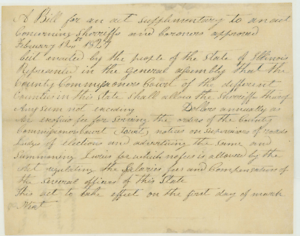 A Bill for an act supplementary to an act
concerning Sherriffs and Coroners approved
February 12th 1827
be it enacted by the people of the State of Illinois
Represented in the General assembly that the
County Commissioners Court of the different
Counties in this State shall allow the Sheriff thereof
Any Sum not exceeding Dollars annually as
for serving the orders of the County
Commissioners Court notices on supervisors of roads
Judges of elections and advertising the same and
Summoning Juries for which no fee is allowed by the
Act regulating the Salaries fees and Compensation of
the Several officers of this State
This act to take effect on the first day of march